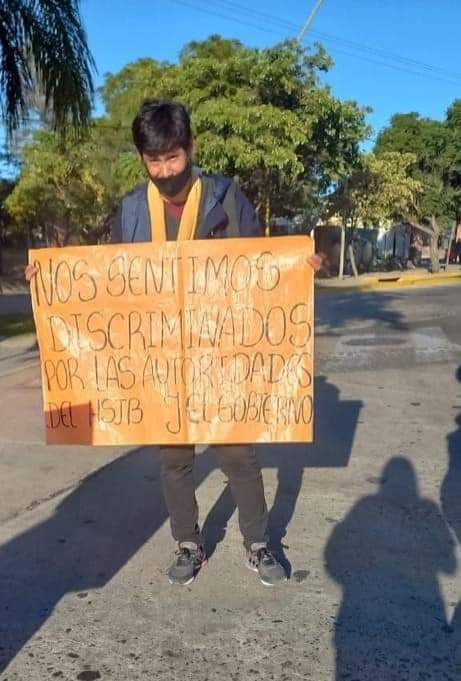 NOS SENTIMOS
DISCRIMINADOS
POR LAS AUTORIDADES
DEL HSJB Y EL GOBIERNO